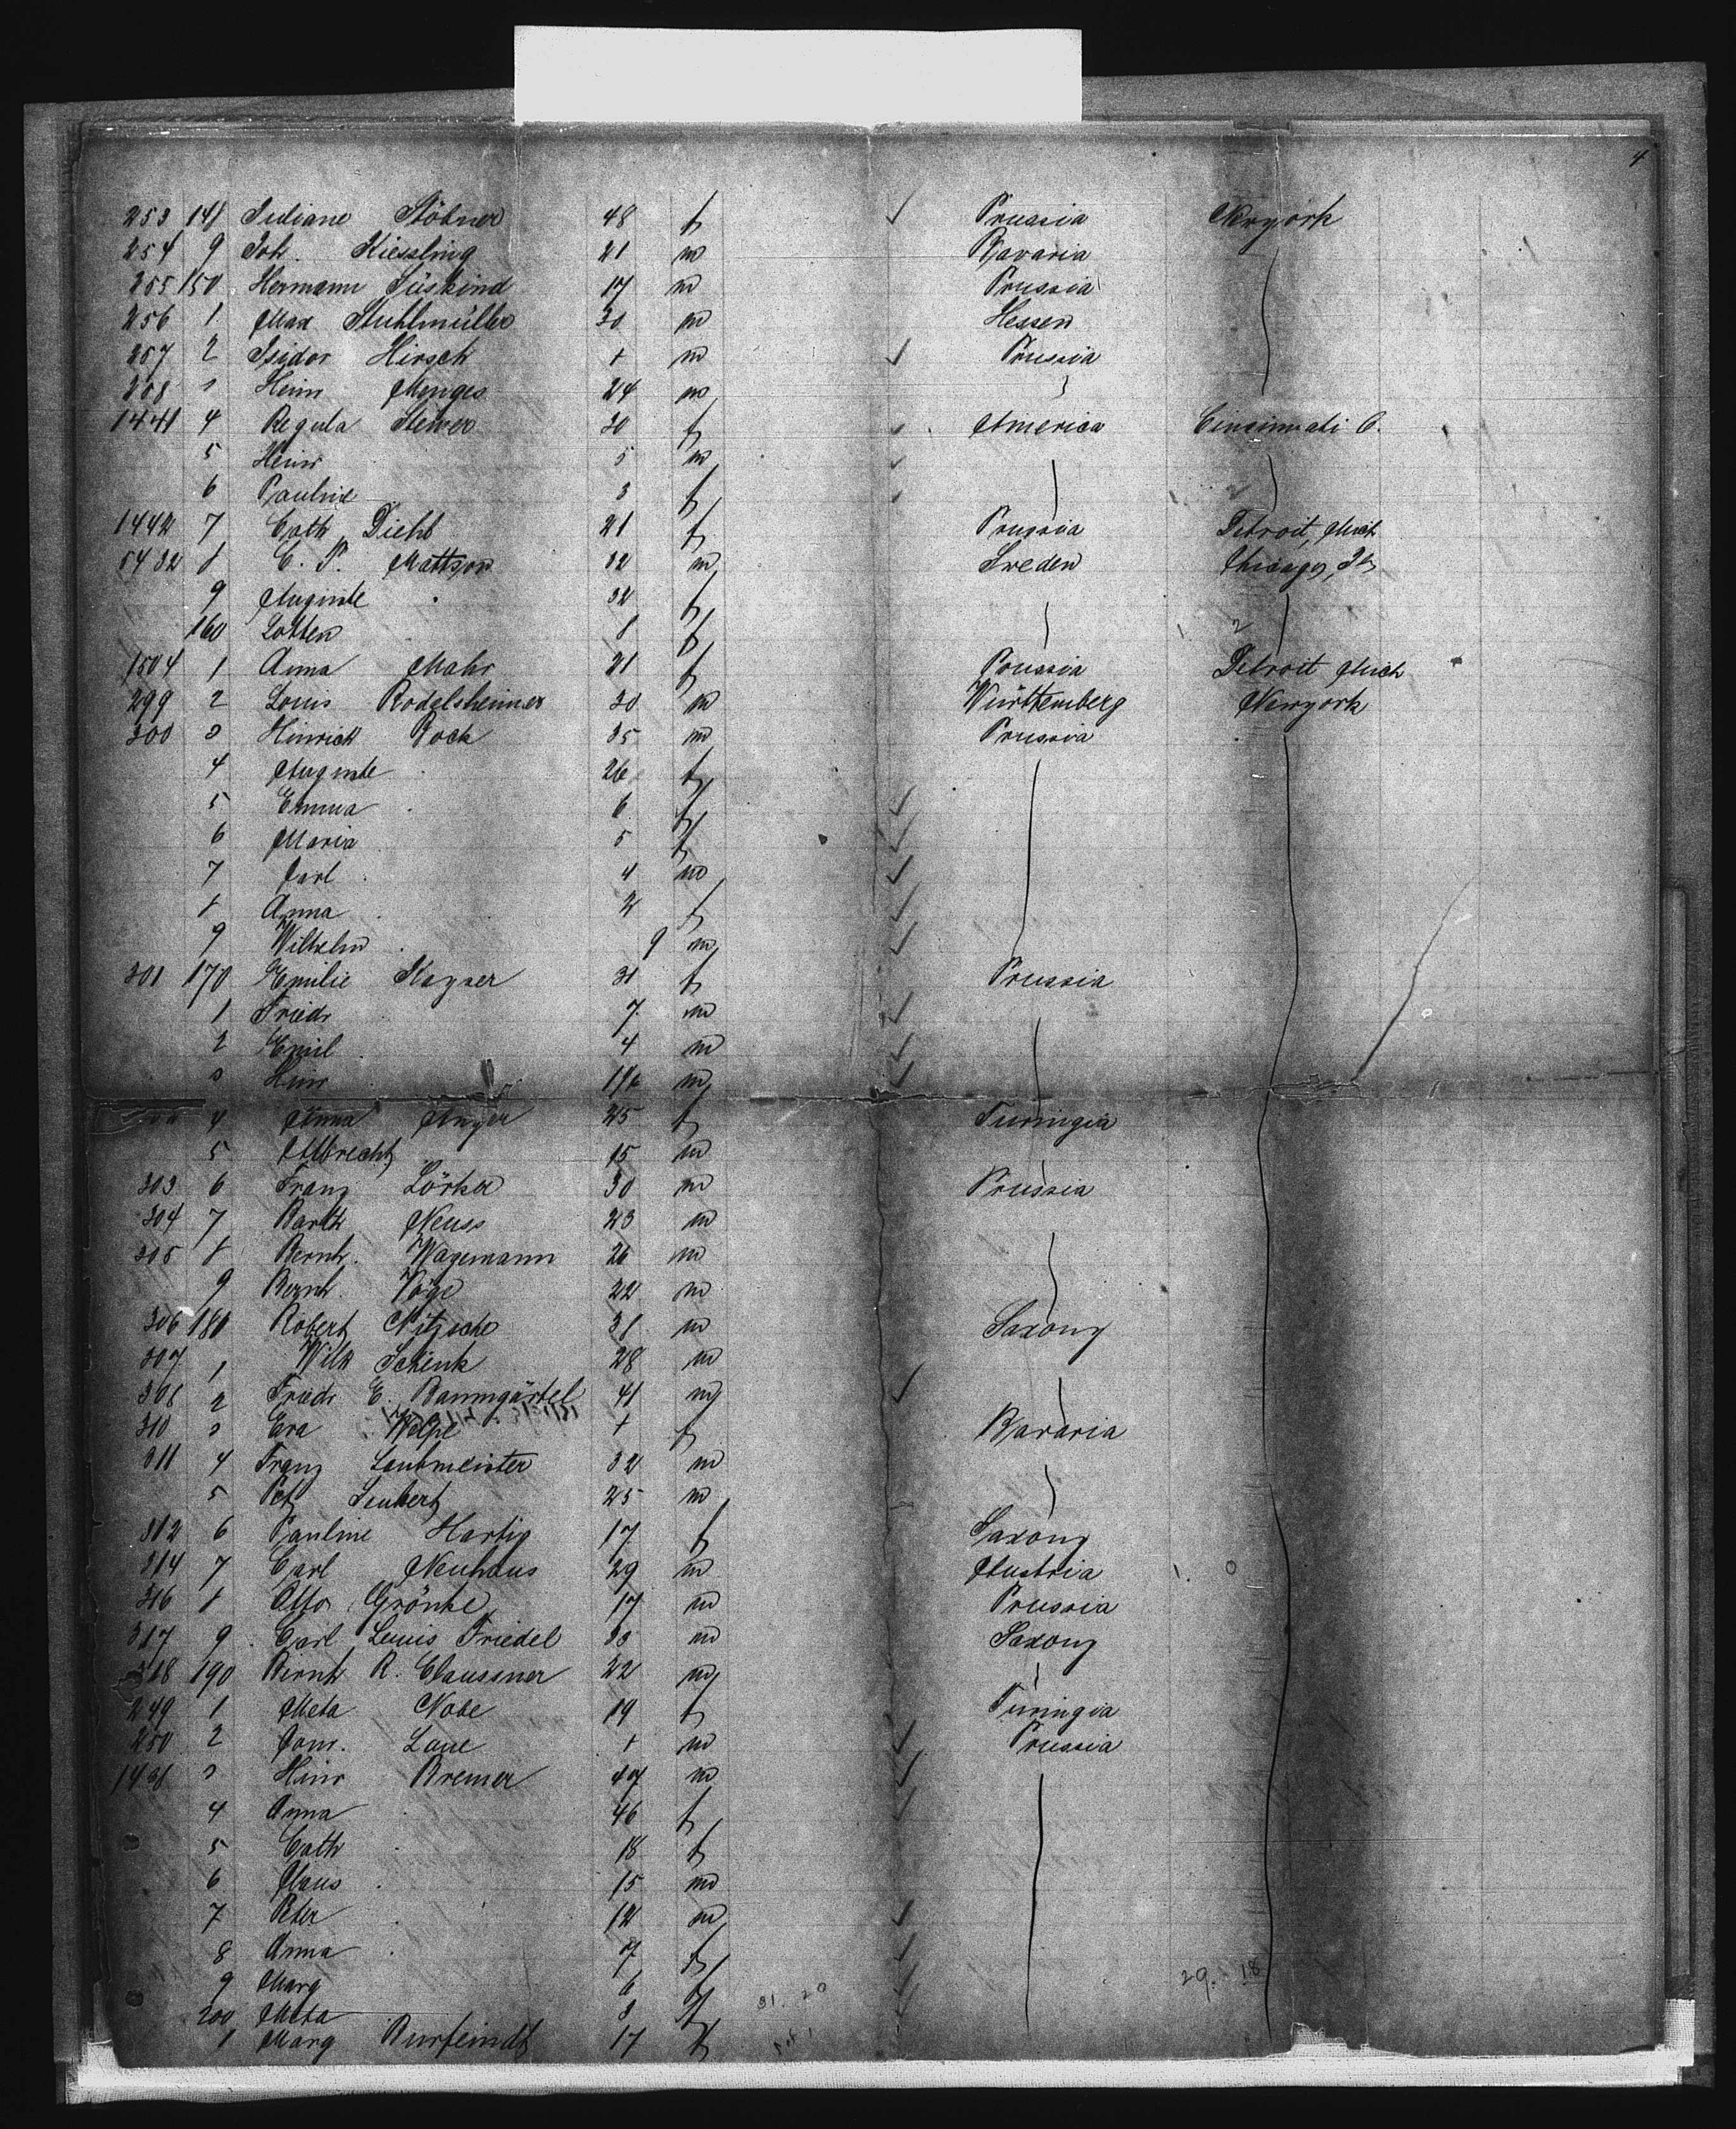 4
253 148 Juliane Stöbner 48 f Prussia Newyork
254 9 Joh. Kiessling 21 m Bavaria
255 150 Hermann Süskind 17 m Prussia
256 1 Max Stuhlmüller 30 m Hessen
257 2 Isidor Hirsch + m Prussia
258 3 Heinr Menges 24 m
1441 4 Regula 30 f America Cincinnati O.
5 Heinr 5 m
6 Pauline 3 f
1442 7 Cath Diehl 21 f Prussia Detroit, Mich
5432 8 C. P. Mattson 32 m Sweden Chicago, Ils
9 Auguste 32 f
160 Lotten 8 f
1504 1 Anna Mahr 21 f Prussia Detroit Mich
299 2 Louis Rodelsheimer 30 m Württemberg Newyork
300 3 Hinrich Bock 35 m Prussia
4 Auguste 26 f
5 Emma 6 f
6 Maria 5 f
7 Carl 4 m
8 Anna 2 f
9 Wilhelm 9 m
301 170 Emilie Kayser 31 f Prussia
1 Friedr 7 m
2 Emil 4 m
3 Hinr m
4 Anna Anger 25 f Turingia
5 Albrecht 15 m
303 6 Franz Lörker 30 m Prussia
304 7 Barth Neuss 23 m
305 8 Bernh. Wagemann 26 m
9 Bernh. Vöge 22 m
306 180 Robert Nitzsche 31 m Saxony
307 1 Wilh Schenk 28 m
308 2 Friedr E. Baumgärtel 41 m
310 3 Eva Welpe + f Bavaria
311 4 Franz Laubmeister 32 m
5 Pet Seubert 25 m
312 6 Pauline Hartig 17 f Saxony
314 7 Carl Neuhaus 29 m Austria 1. 0
316 8 Otto Grönke 17 m Prussia
317 9 Carl Louis Friedel 33 m Saxony
318 190 Bernh R. Claussner 22 m
249 1 Meta Nobe 19 f Turingia
250 2 Conr. Laue + m Prussia
3 Hinr Bremer 47 m
4 Anna 46 f
5 Cath 18 f
6 Claus 15 m
7 Peter 12 m
8 Anna 7 f
9 Marg 6 f 29. 18
200 Meta 3 f 31. 20
1 Marg Burfeindt 17 f